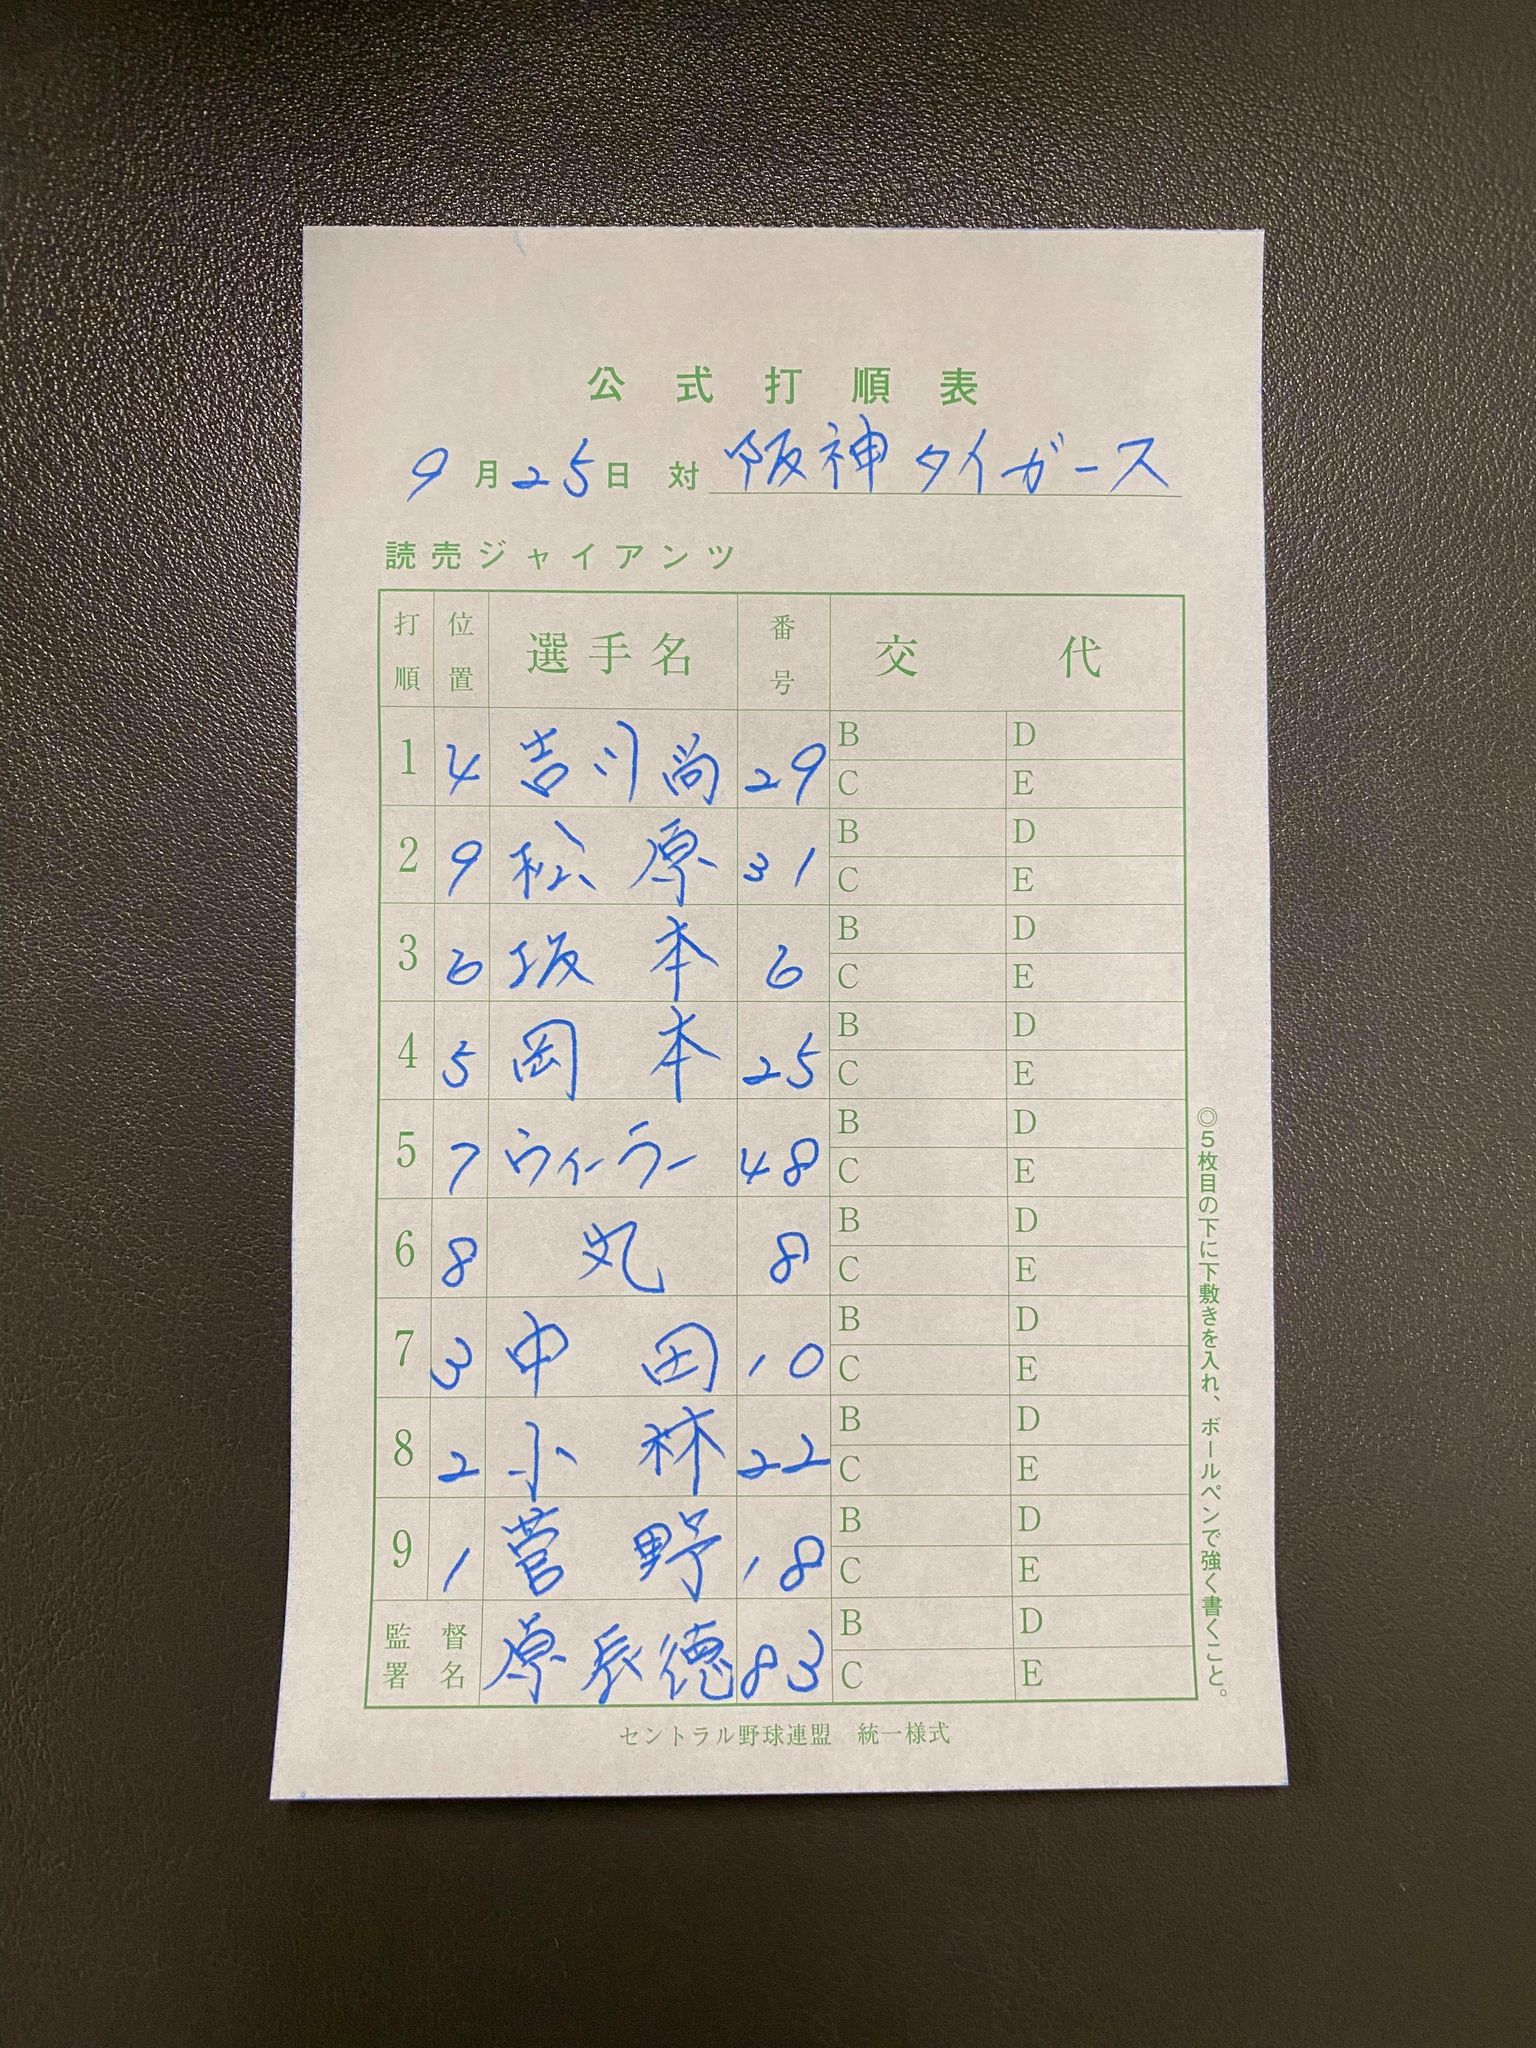 公式打順表
9月25日 対 阪神タイガース
読売ジャイアンツ
打順 位置 選手名 番号 交代
1 4 吉川尚 29 B D C E
2 9 松原 31 B D C E
3 6 坂本 6 B D C E
4 5 岡本 25 B D C E
5 7 ウィーラー 48 B D C E
6 8 丸 8 B D C E
7 3 中田 10 B D C E
8 2 小林 22 B D C E
9 1 菅野 18 B D C E
監督署名 原辰徳 83 B D C E
セントラル野球連盟 統一様式
◎5枚目の下に下敷きを入れ、ボールペンで強く書くこと。